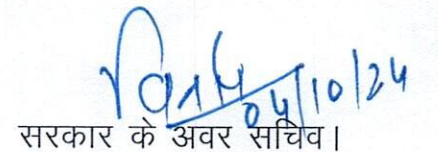 04/10/24
सरकार के अवर सचिव।